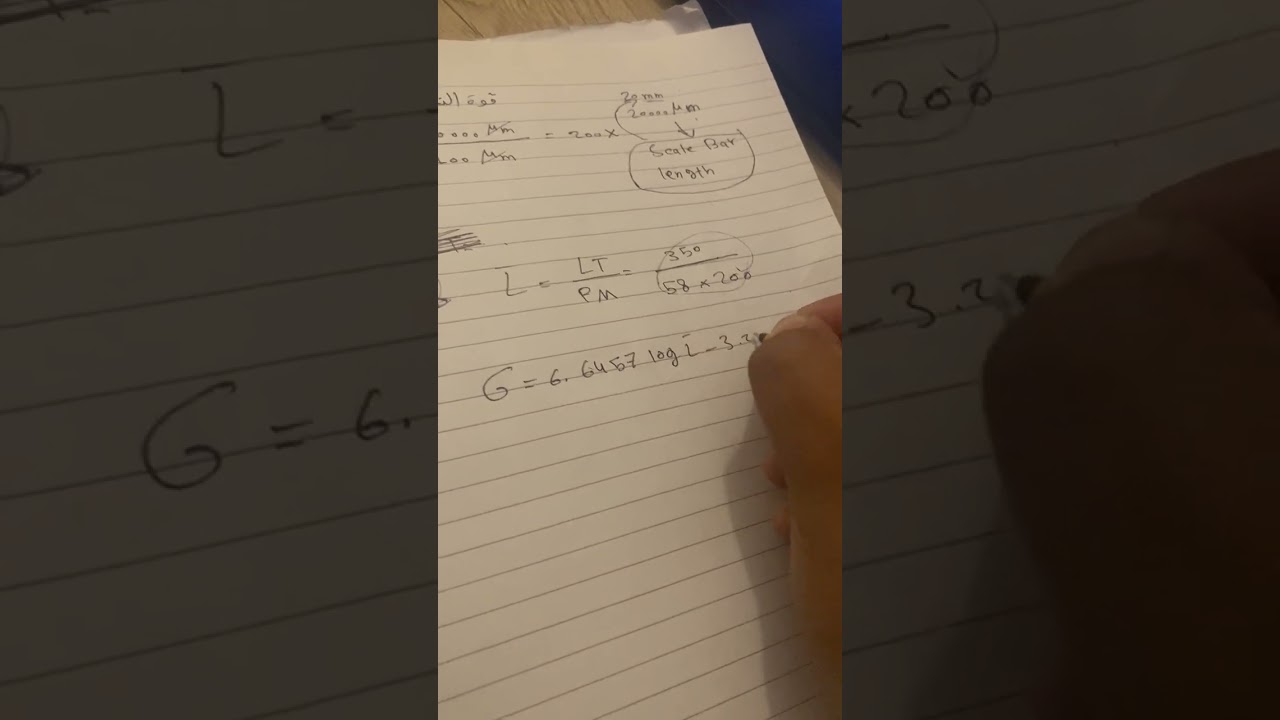 قوة
20 mm
20000 μm
0000 μm
= 200 X
100 μm
Scale Bar
length
L = LT / PM = 350 / 58 × 200
G = 6.6457 log L - 3.3